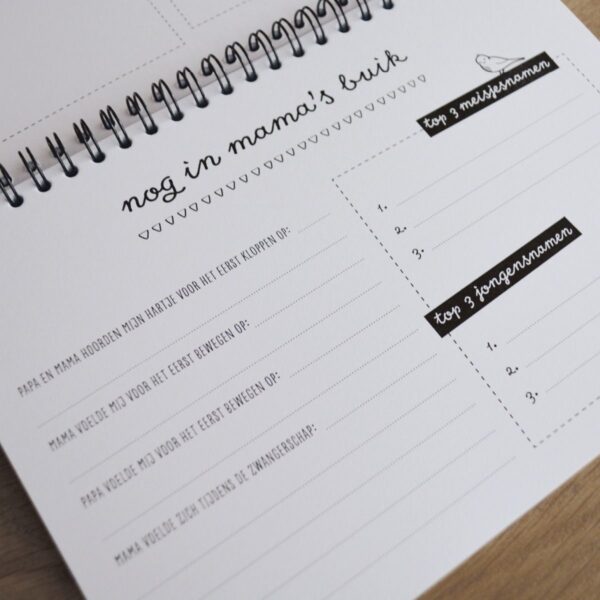 nog in mama's buik
PAPA EN MAMA HOORDEN MIJN HARTJE VOOR HET EERST KLOPPEN OP:
MAMA VOELDE MIJ VOOR HET EERST BEWEGEN OP:
PAPA VOELDE MIJ VOOR HET EERST BEWEGEN OP:
MAMA VOELDE ZICH TIJDENS DE ZWANGERSCHAP:
top 3 meisjesnamen
1.
2.
3.
top 3 jongensnamen
1.
2.
3.